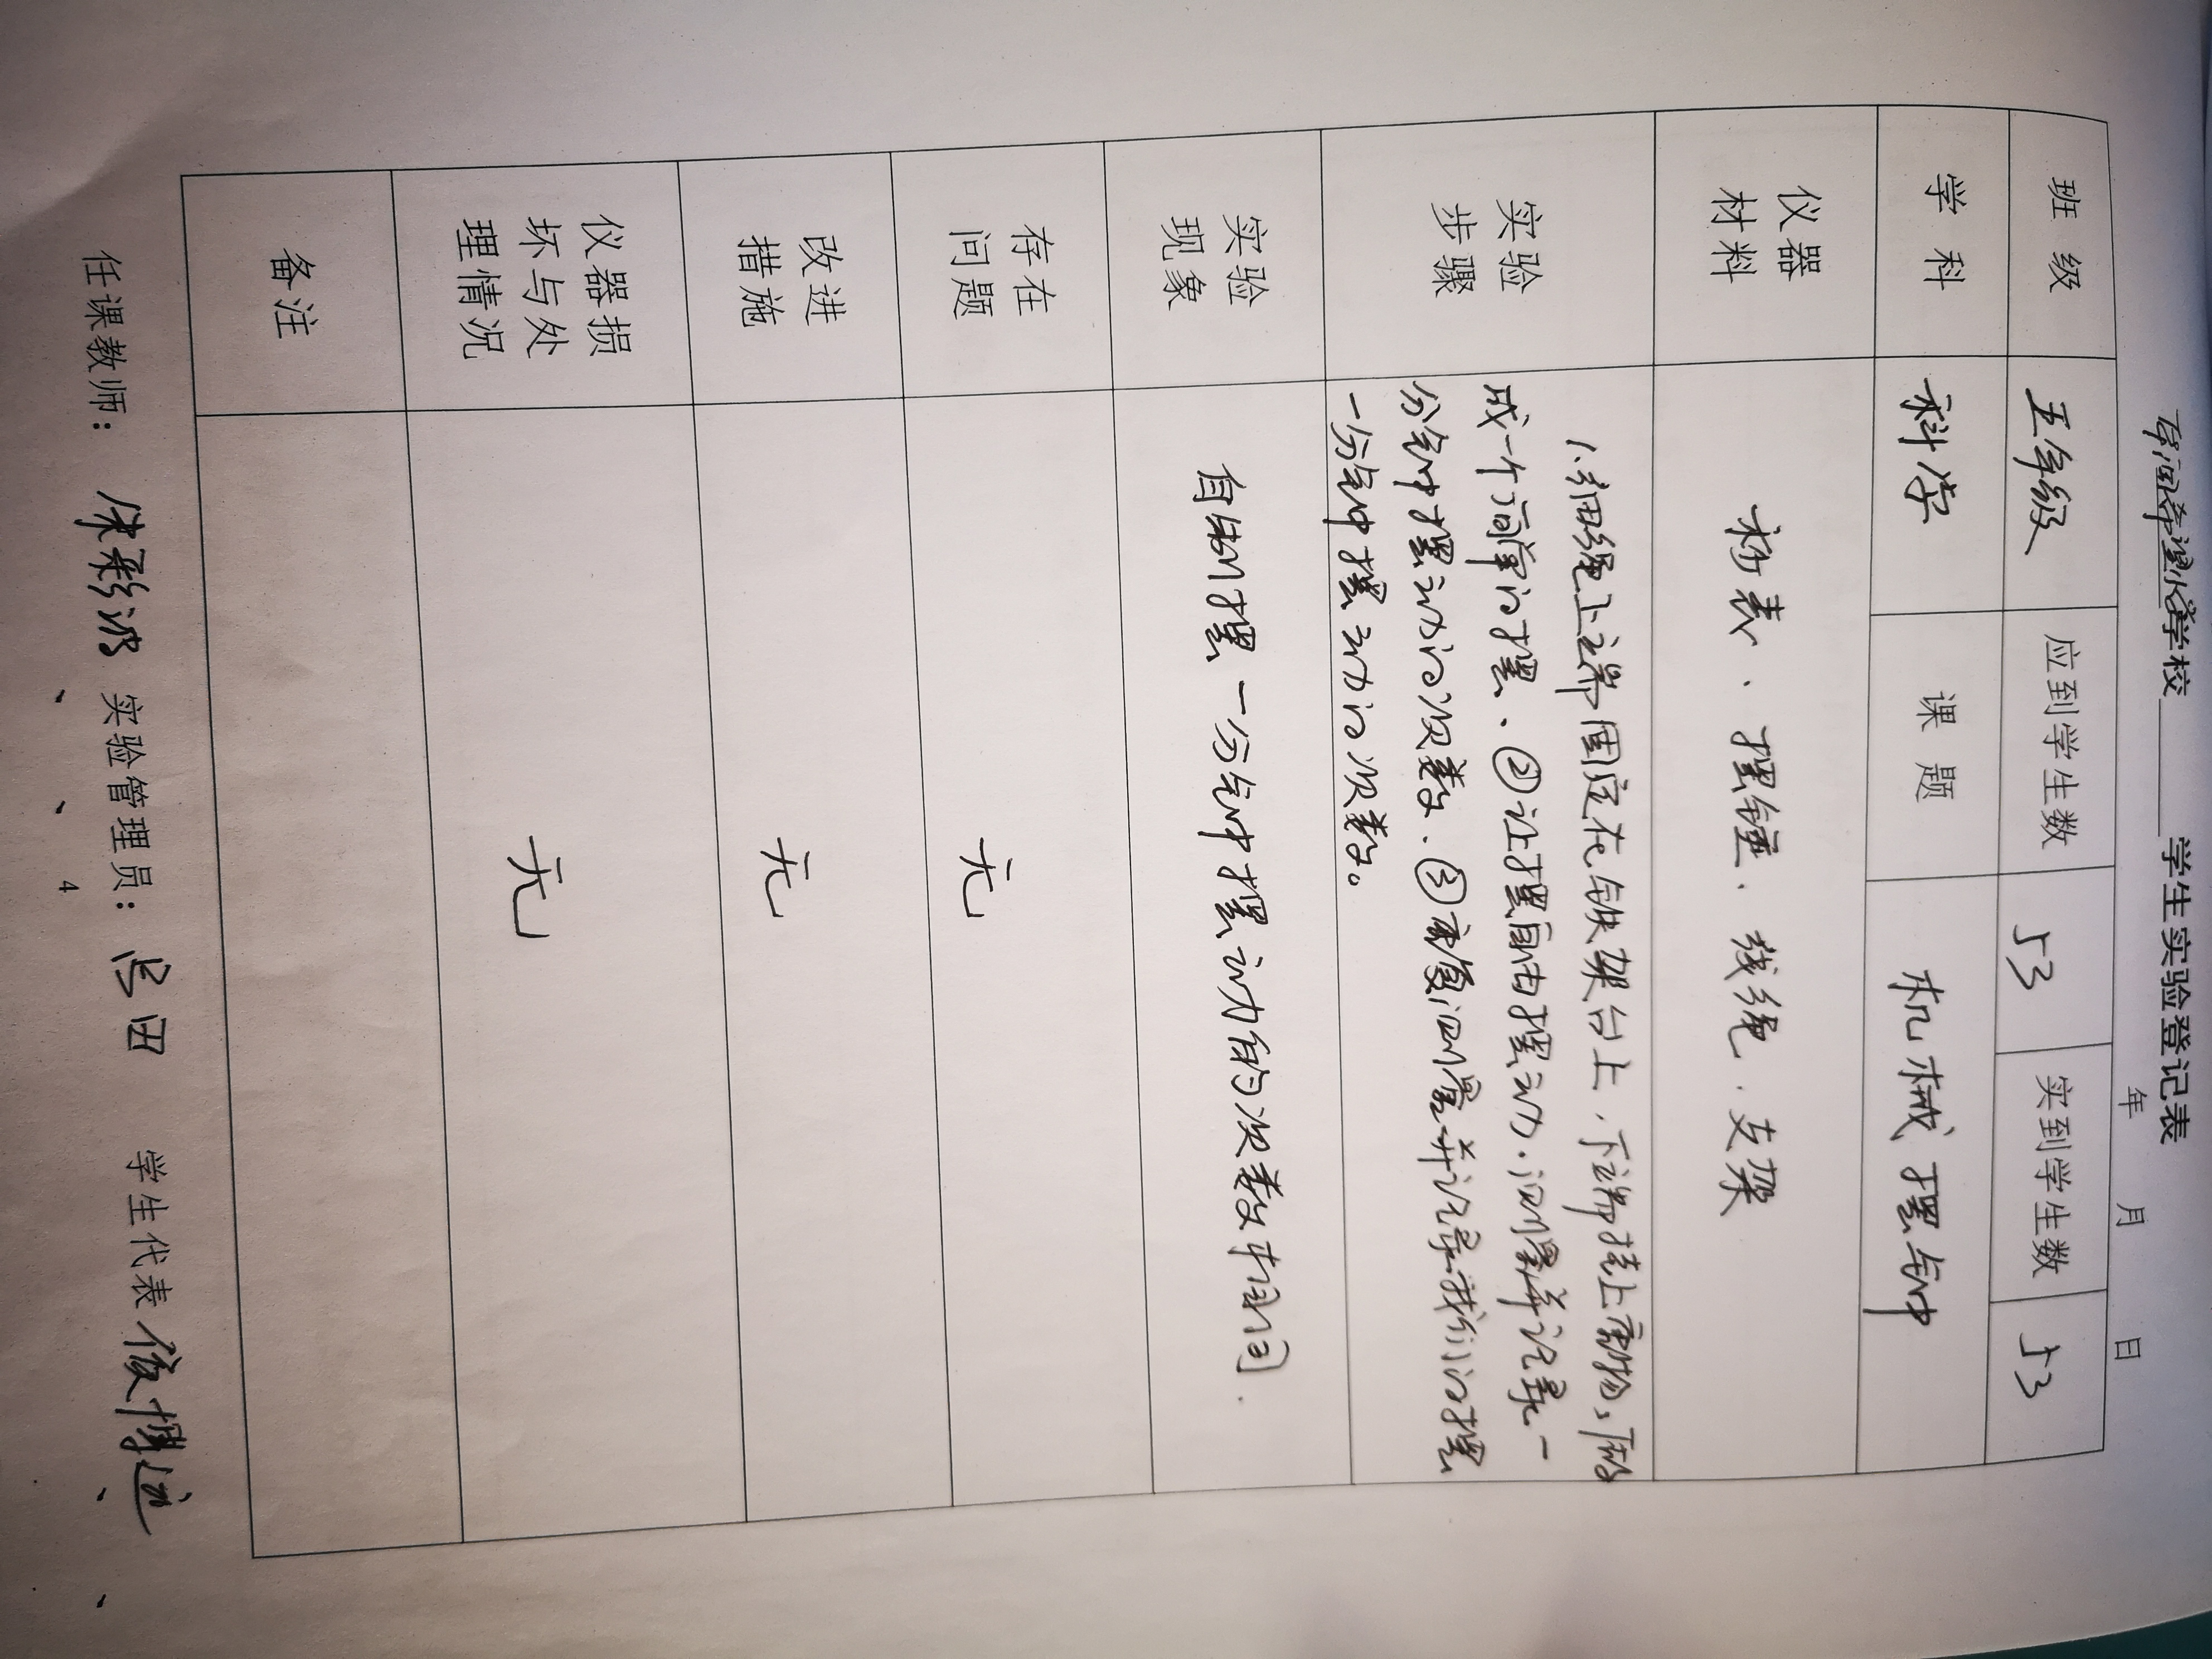 希望小学学校 学生实验登记表
年 月 日
班级 五年级 应到学生数 53 实到学生数 53
学科 科学 课题 机械摆钟
仪器材料 秒表、摆锤、线绳、支架
实验步骤 1.细绳上端固定在铁架台上,下端挂上重物,
成一个简单的摆、②让摆自由摆动.测量并记录一
分钟摆动的次数、③重复测量并记录我们的摆
一分钟摆动的次数。
实验现象 自制的摆一分钟摆动的次数相同.
存在问题 无
改进措施 无
仪器损坏与处理情况 无
备注
任课教师: 实验管理员: 田 学生代表
4